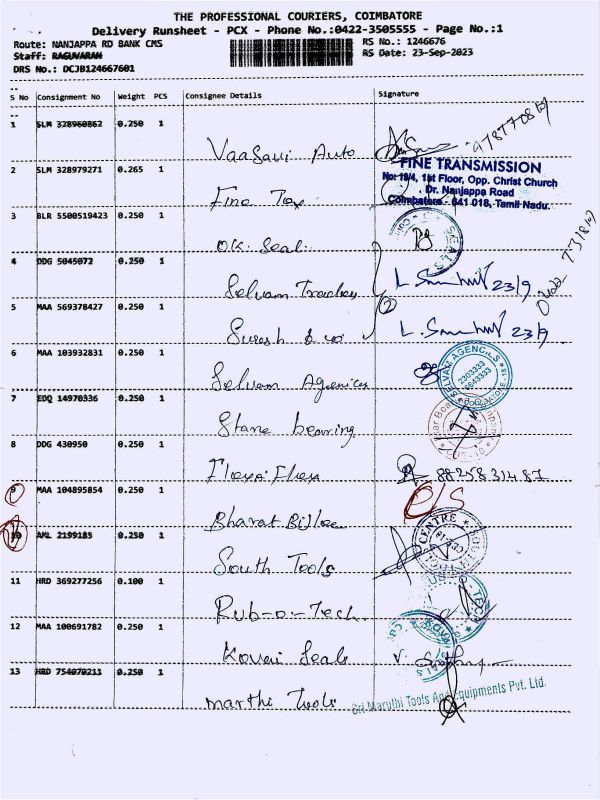 THE PROFESSIONAL COURIERS, COIMBATORE
Delivery Runsheet - PCX - Phone No.:0422-3505555 - Page No.:1
Route: NANJAPPA RD BANK CMS RS No.: 1246676
Staff: RAGUVARAN RS Date: 23-Sep-2023
DRS No.: DCJB124667601
S No Consignment No Weight PCS Consignee Details Signature
1 SLM 328960862 0.250 1
Vaasavi Auto
2 SLM 328979271 0.265 1
FINE TRANSMISSION
No: 19/4, 1st Floor, Opp. Christ Church
Dr. Nanjappa Road
Coimbatore - 641 018, Tamil Nadu.
Fine Tax
3 BLR 5500519423 0.250 1
Ok Seal
4 DDG 5045072 0.250 1
Selvam Traders L. 23/9
5 MAA 569378427 0.250 1
Suresh & co L. 23/9
6 MAA 103932831 0.250 1
SELVAM AGENCIES
Selvam Agencies
7 EDQ 14970336 0.250 1
Stane bearing
8 DDG 430950 0.250 1
Flexi Flexa 8825831487
9 MAA 104895854 0.250 1
Bharat Bijlee
10 AML 2199185 0.250 1
CENTRE
South Tools
11 HRD 369277256 0.100 1
Rub-o-Tech
12 MAA 100691782 0.250 1
Kovai Seals
13 HRD 754070211 0.250 1
Marthi Tools
Sri Maruthi Tools And Equipments Pvt. Ltd.